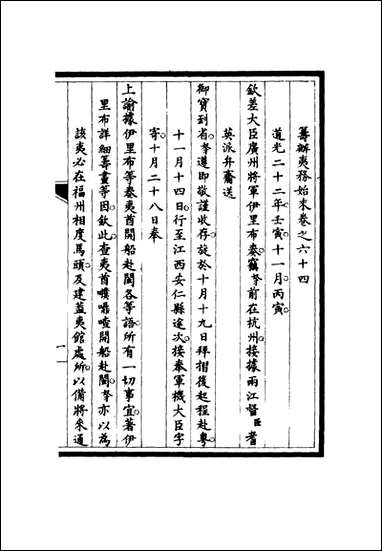 籌辦夷務始末卷之六十四
道光二十二年壬寅十一月丙寅
欽差大臣廣州將軍伊里布奏竊奴才前在杭州接據兩江督臣耆
英派弁齎送
御寶到省奴才遵即敬謹收存旋於十月十九日拜摺後起程赴粵
十一月十四日行至江西安仁縣途次接奉軍機大臣字
寄十月二十八日奉
上諭據伊里布等奏夷酋開船赴閩各等語所有一切事宜著伊
里布詳細籌畫等因欽此查夷酋噗嚕喳開船赴閩奴才亦以為
該夷必在福州相度馬頭及建蓋夷館處所以備將來通
一